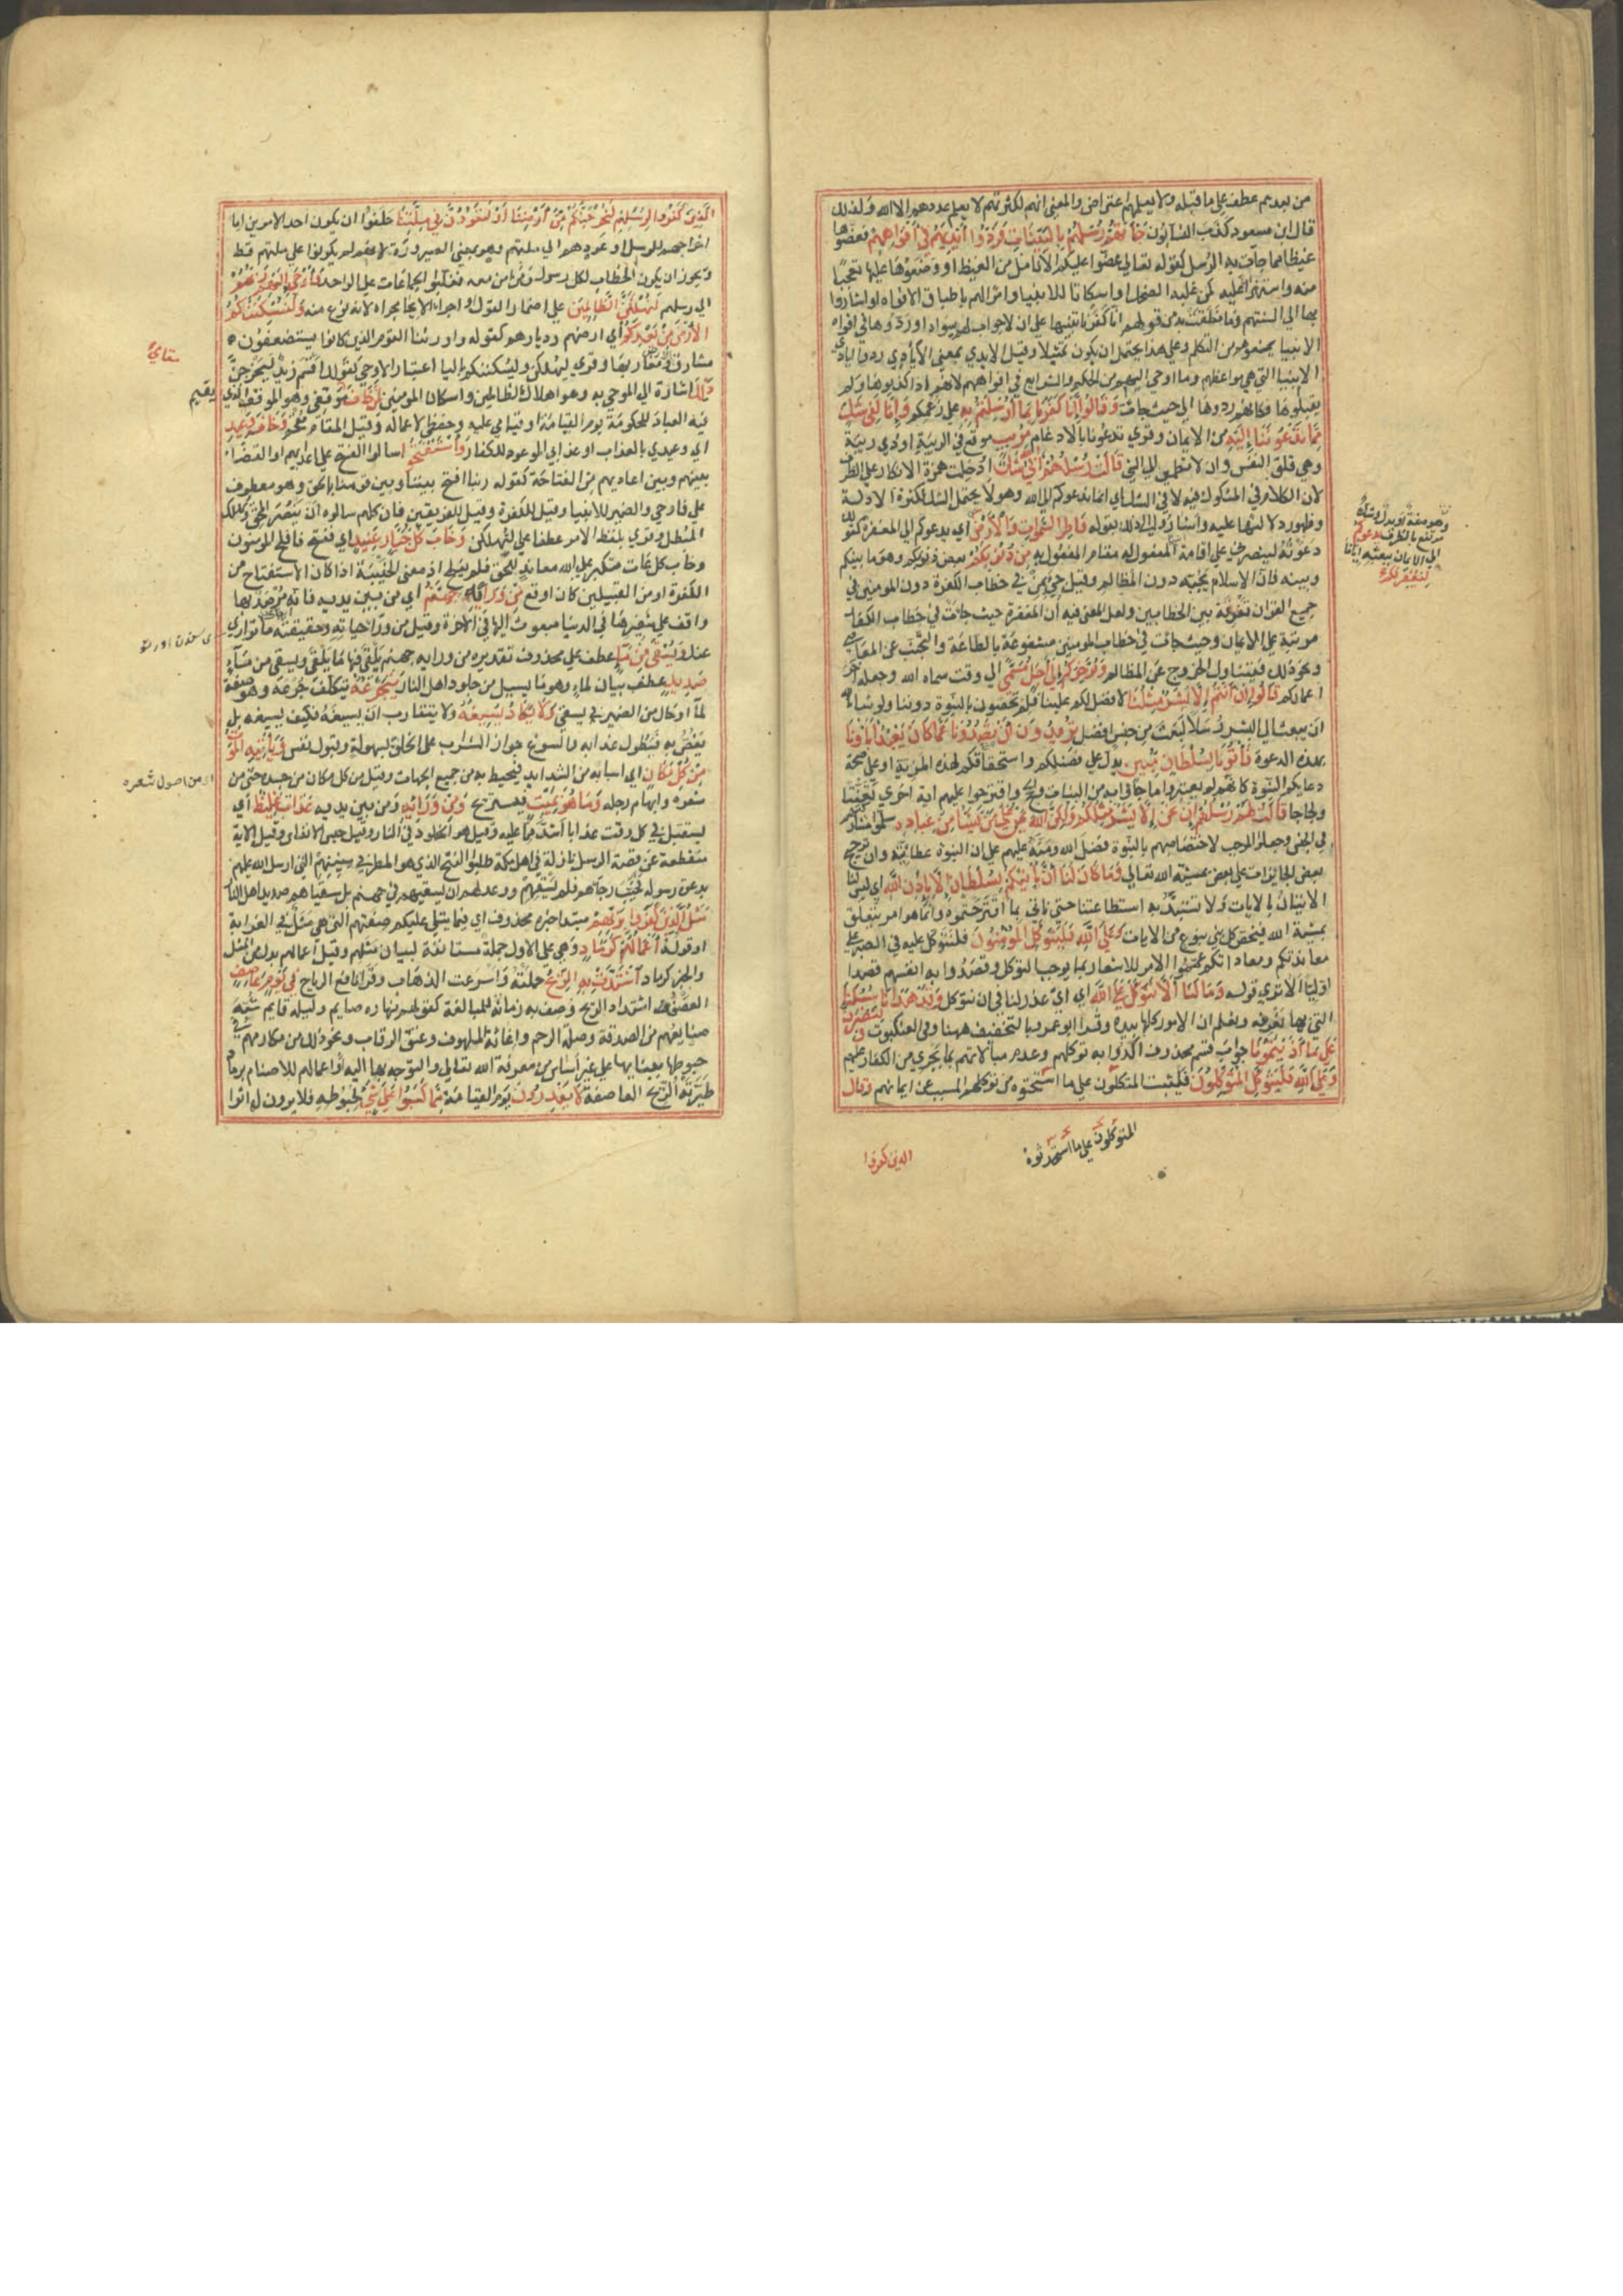 من بعدهم عطف على ما قبله ولا يعلمهم اعتراض والمعنى انهم لكثرتهم لا يعلم عددهم الا الله ولذلك
قال ابن مسعود كذب النسابون جَاءَتْهُمْ رُسُلُهُمْ بِالْبَيِّنَاتِ فَرَدُّوا أَيْدِيَهُمْ فِي أَفْوَاهِهِمْ فعضوها
غيظا مما جآت به الرسل كقوله تعالى عضوا عليكم الانامل من الغيظ او وضعوها عليها تعجبا
منه واستهزاء عليه كمن غلبه الضحك او اسكاتا للانبيا وامرا لهم باطباق الافواه او اشاروا
بها الى السنتهم وما نطقت به من قولهم انا كفرنا تنبيها على ان لا جواب لهم سواه او ردوها في افواه
الانبيا يمنعونهم من التكلم وعلى هذا يحتمل ان يكون تمثيلا وقيل الايدي بمعنى الأيادي اي ردوا ايادي
الانبيا التي هي مواعظهم وما اوحي اليهم من الحكم والشرايع في افواههم لانهم اذا كذبوها ولم
يقبلوها فكانهم ردوها الى حيث جات منه وَقَالُوا إِنَّا كَفَرْنَا بِمَا أُرْسِلْتُمْ بِهِ على زعمكم وَإِنَّا لَفِي شَكٍّ
مِمَّا تَدْعُونَنَا إِلَيْهِ من الايمان وقري تدعونا بالادغام مُرِيبٍ موقع في الريبة او ذي ريبة
وهي قلق النفس وان لا تطمين الى الشي قَالَتْ رُسُلُهُمْ أَفِي اللَّهِ شَكٌّ ادخلت همزة الانكار على الظرف
لان الكلام في المشكوك فيه لا في الشك اي انما ندعوكم الى الله وهو لا يحتمل الشك لكثرة الادلة
وظهور دلالتها عليه واشار الى ذلك بقوله فَاطِرِ السَّمَوَاتِ وَالْأَرْضِ اي يدعوكم الى المغفرة كقولك
دعوته لينصرني على اقامة المفعول له مقام المفعول به مِنْ ذُنُوبِكُمْ بعض ذنوبكم وهو ما بينكم
وبينه فان الاسلام يجبه دون المظالم وقيل جي بمن في خطاب الكفرة دون المومنين في
جميع القران تفرقة بين الخطابين ولعل المعنى فيه ان المغفرة حيث جات في خطاب الكفار
مرتبة على الايمان وحيث جات في خطاب المومنين مشفوعة بالطاعة والتجنب عن المعاصي
ونحو ذلك فيتناول الخروج عن المظالم وَيُؤَخِّرَكُمْ إِلَى أَجَلٍ مُسَمًّى الى وقت سماه الله وجعله اخر
اعماركم قَالُوا إِنْ أَنْتُمْ إِلَّا بَشَرٌ مِثْلُنَا لا فضل لكم علينا فلم تخصون بالنبوة دوننا ولو شاء الله
ان يبعث الى البشر رسلا لبعث من جنس افضل تُرِيدُونَ أَنْ تَصُدُّونَا عَمَّا كَانَ يَعْبُدُ آبَاؤُنَا
بهذه الدعوة فَأْتُونَا بِسُلْطَانٍ مُبِينٍ يدل على فضلكم واستحقاقكم لهذه المزية او على صحة
دعايكم النبوة كانهم لم يعتبروا ما جاؤا به من البينات والحج واقترحوا عليهم اية اخرى تعنتا
ولجاجا قَالَتْ لَهُمْ رُسُلُهُمْ إِنْ نَحْنُ إِلَّا بَشَرٌ مِثْلُكُمْ وَلَكِنَّ اللَّهَ يَمُنُّ عَلَى مَنْ يَشَاءُ مِنْ عِبَادِهِ سلموا مشاركتهم
في الجنس وجعلوا الموجب لاختصاصهم بالنبوة فضل الله ومنّه عليهم على ان النبوة عطائية وان ترجيح
بعض الجايزات على بعض بمشيئة الله تعالى وَمَا كَانَ لَنَا أَنْ نَأْتِيَكُمْ بِسُلْطَانٍ إِلَّا بِإِذْنِ اللَّهِ اي ليس لنا
الاتيان بالايات ولا تستبد به استطاعتنا حتى ناتي بما اقترحتموه وانما هو امر يتعلق
بمشية الله فيخص كل نبي بنوع من الايات وَعَلَى اللَّهِ فَلْيَتَوَكَّلِ الْمُؤْمِنُونَ فلنتوكل عليه في الصبر على
معاندتكم ومعاداتكم عمموا الامر للاشعار بما يوجب التوكل وقصدوا به انفسهم قصدا
اوليا الا ترى قوله وَمَا لَنَا أَلَّا نَتَوَكَّلَ عَلَى اللَّهِ اي اي عذر لنا في ان نتوكل وَقَدْ هَدَانَا سُبُلَنَا
التي بها نعرفه ونعلم ان الامور كلها بيده وقرا ابو عمرو بالتخفيف ههنا وفي العنكبوت وَلَنَصْبِرَنَّ
عَلَى مَا آذَيْتُمُونَا جواب قسم محذوف اكدوا به توكلهم وعدم مبالاتهم بما يجري من الكفار عليهم
وَعَلَى اللَّهِ فَلْيَتَوَكَّلِ الْمُتَوَكِّلُونَ فليثبت المتكلون على ما استحثوه من توكلهم المسبب عن ايمانهم وقال
وهو صفة او بدل وشك
مرتفع بالظرف يدعوكم
الى الايمان ببعثه ايانا
ليغفر لكم
المتوكلون على ما استحدثوه
الذين كفروا
الَّذِينَ كَفَرُوا لِرُسُلِهِمْ لَنُخْرِجَنَّكُمْ مِنْ أَرْضِنَا أَوْ لَتَعُودُنَّ فِي مِلَّتِنَا حلفوا ان يكون احد الامرين اما
اخراجهم للرسل او عودهم الى ملتهم وهو بمعنى الصيرورة لانهم لم يكونوا على ملتهم قط
ويجوز ان يكون الخطاب لكل رسول ومن امن معه فغلبوا الجماعات على الواحد فَأَوْحَى إِلَيْهِمْ رَبُّهُمْ
الى رسلهم لَنُهْلِكَنَّ الظَّالِمِينَ على اضمار القول او اجراء الايحا مجراه لانه نوع منه وَلَنُسْكِنَنَّكُمُ
الْأَرْضَ مِنْ بَعْدِهِمْ اي ارضهم وديارهم كقوله واورثنا القوم الذين كانوا يستضعفون
مشارق الارض ومغاربها وقري ليهلكن وليسكننكم باليا اعتبارا لاوحى كقولك اقسم زيد ليخرجن
ذَلِكَ اشارة الى الموحى به وهو اهلاك الظالمين واسكان المومنين لِمَنْ خَافَ موقفي وهو الموقف الذي
فيه العباد للحكومة يوم القيامة او قيامي عليه وحفظي لاعماله وقيل المقام مقحم وَخَافَ وَعِيدِ
اي وعيدي بالعذاب او عذابي الموعود للكفار وَاسْتَفْتَحُوا اسالوا الفتح على اعدايهم او القضاء
بينهم وبين اعاديهم من الفتاحة كقوله ربنا افتح بيننا وبين قومنا بالحق وهو معطوف
على فاوحى والضمير للانبيا وقيل للكفرة وقيل للفريقين فان كلهم سالوه ان ينصر المحق ويهلك
المبطل وقري بلفظ الامر عطفا على لنهلكن وَخَابَ كُلُّ جَبَّارٍ عَنِيدٍ اي ففتح فافلح المومنون
وخاب كل عات متكبر على الله معاند للحق فلم يفلح اذ معنى الخيبة اذا كان الاستفتاح من
الكفرة او من القبيلين كان اوقع مِنْ وَرَائِهِ جَهَنَّمُ اي من بين يديه فانه مرصد بها
واقف على شفيرها في الدنيا مبعوث اليها في الاخرة وقيل من ورا حياته وحقيقته ما توارى
عنك وَيُسْقَى مِنْ مَاءٍ عطف على محذوف تقديره من ورايه جهنم يلقى فيها ما يلقى ويسقى من ماء
صَدِيدٍ عطف بيان لماء وهو ما يسيل من جلود اهل النار يَتَجَرَّعُهُ يتكلف جرعه وهو صفة
لماء او حال من الضمير في يسقى وَلَا يَكَادُ يُسِيغُهُ ولا يتقارب ان يسيغه فكيف يسيغه بل
يغص به فيطول عذابه والسوغ جواز الشراب على الحلق بسهولة وقبول نفس وَيَأْتِيهِ الْمَوْتُ
مِنْ كُلِّ مَكَانٍ اي اسبابه من الشدايد فيحيط به من جميع الجهات وقيل من كل مكان من جسده حتى من
شعره وابهام رجله وَمَا هُوَ بِمَيِّتٍ فيستريح وَمِنْ وَرَائِهِ ومن بين يديه عَذَابٌ غَلِيظٌ اي
يستقبل في كل وقت عذابا اشد مما عليه وقيل هو الخلود في النار وقيل حبس الانفاس وقيل الاية
منقطعة عن قصة الرسل نازلة في اهل مكة طلبوا الفتح الذي هو المطر في سنينهم التي ارسل الله عليهم
بدعوة رسوله فخيب رجاهم فلم يسقهم ووعد لهم ان يسقيهم في جهنم بل سقياهم صديد اهل النار
مَثَلُ الَّذِينَ كَفَرُوا بِرَبِّهِمْ مبتدا خبره محذوف اي فيما يتلى عليكم صفتهم التي هي مثل في الغرابة
او قوله أَعْمَالُهُمْ كَرَمَادٍ وهي على الاول جملة مستانفة لبيان مثلهم وقيل اعمالهم بدل من المثل
والخبر كرماد اشْتَدَّتْ بِهِ الرِّيحُ حملته واسرعت الذهاب وقرا نافع الرياح فِي يَوْمٍ عَاصِفٍ
العصف اشتداد الريح وصف به زمانه للمبالغة كقولهم نهاره صايم وليله قايم شبه
صنايعهم من الصدقة وصلة الرحم واغاثة الملهوف وعتق الرقاب ونحو ذلك من مكارمهم في
حبوطها بنائها على غير اساس من معرفة الله تعالى والتوجه بها اليه او اعمالهم للاصنام برماد
طيرته الريح العاصفة لَا يَقْدِرُونَ يوم القيامة مِمَّا كَسَبُوا عَلَى شَيْءٍ لحبوطه فلا يرون له اثرا
مقامي
يقيم
او من اصول شعره